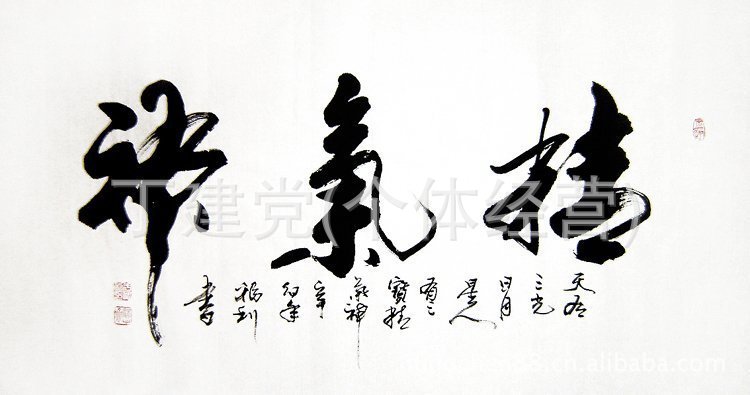 精氣神
天有
三光
日月
星人
有三
寶精
氣神
辛
卯年
書
丁建党(个体经营)
.cn.alibaba.com